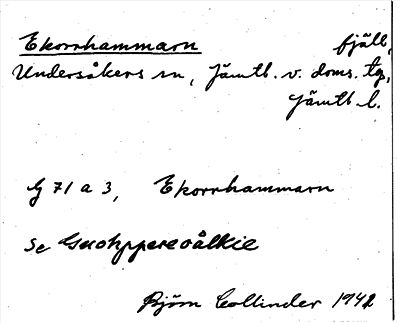 Ekorrhammarn fjäll,
Undersåkers sn, Jämtl. v. doms. tg,
Jämtl l.
G 71 a 3, Ekorrhammarn
Se Guohppereoålkie
Björn Collinder 1942